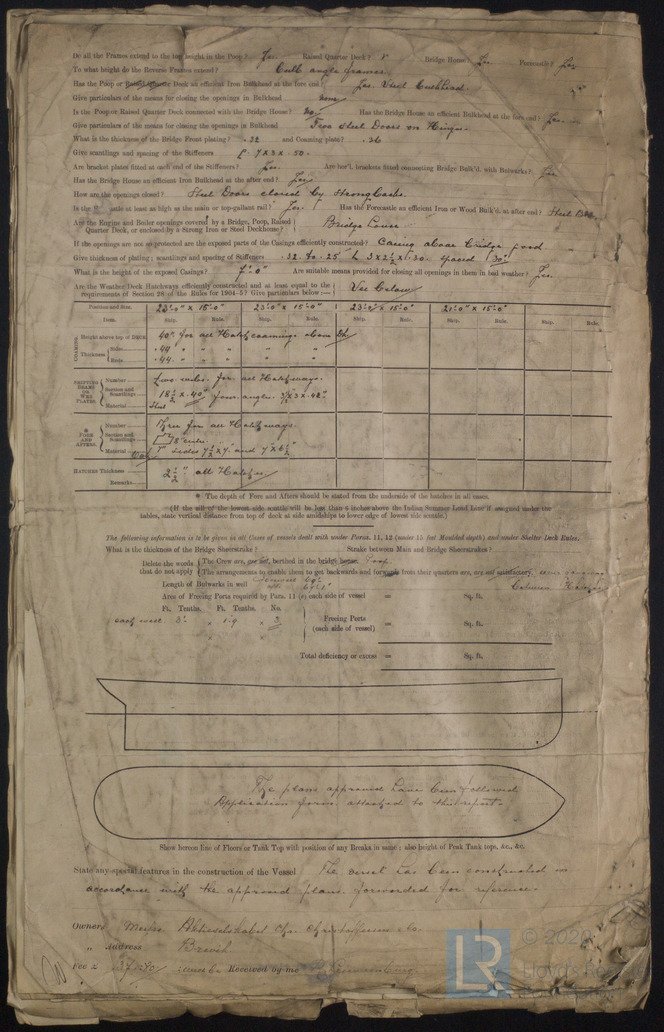 Do all the Frames extend to the top height in the Poop? Yes. Raised Quarter Deck? Bridge House? Yes. Forecastle? Yes
To what height do the Reverse Frames extend? Bulb angle frames
Has the Poop or Raised Quarter Deck an efficient Iron Bulkhead at the fore end? Yes. Steel Bulkhead.
Give particulars of the means for closing the openings in Bulkhead none
Is the Poop or Raised Quarter Deck connected with the Bridge House? No Has the Bridge House an efficient Bulkhead at the fore end? Yes
Give particulars of the means for closing the openings in Bulkhead Two Steel Doors on Hinges.
What is the thickness of the Bridge Front plating? .32 and Coaming plate? .36
Give scantlings and spacing of the Stiffeners 9 x 3 x .50.
Are bracket plates fitted at each end of the Stiffeners? Yes. Are hor'l. brackets fitted connecting Bridge Bulk'd. with Bulwarks? Yes
Has the Bridge House an efficient Iron Bulkhead at the after end? Yes.
How are the openings closed? Steel Doors closed by strongbacks.
Is the at least as high as the main or top-gallant rail? Yes Has the Forecastle an efficient Iron or Wood Bulk'd. at after end? Steel
Are the Engine and Boiler openings covered by a Bridge, Poop, Raised Quarter Deck, or enclosed by a Strong Iron or Steel Deckhouse? Bridge House
If the openings are not so protected are the exposed parts of the Casings efficiently constructed? Casing above bridge good
Give thickness of plating; scantlings and spacing of Stiffeners .32 to .25 3 x 2½ x .30 spaced 30"
What is the height of the exposed Casings? 7'.0" Are suitable means provided for closing all openings in them in bad weather? Yes
Are the Weather Deck Hatchways efficiently constructed and at least equal to the requirements of Section 28 of the Rules for 1904-5? Give particulars below:— See below
Position and Size. 23'.0" x 15'.0" 23'.0" x 15'.0" 23'.0" x 15'.0" 21'.0" x 15'.0"
Item. Ship. Rule. Ship. Rule. Ship. Rule. Ship. Rule. Ship. Rule.
COAMINGS. Height above top of DECK 40" for all Hatch coamings above Dk
Thickness Sides .44 " " " " "
Ends .44 " " " " "
SHIFTING BEAMS OR WEB PLATES. Number Two webs for all Hatchways.
Section and Scantlings 18½ x .40 four angles 3½ x 3 x .42"
Material Steel
* FORE AND AFTERS. Number Three for all Hatchways.
Section and Scantlings 8" centre
Material sides 7½ x 7 and 7 x 6½
HATCHES Thickness 2½" all Hatches
Remarks
* The depth of Fore and Afters should be stated from the underside of the hatches in all cases.
(If the sill of the lowest side scuttle will be less than 6 inches above the Indian Summer Load Line if assigned under the
tables, state vertical distance from top of deck at side amidships to lower edge of lowest side scuttle.)
The following information is to be given in all Cases of vessels dealt with under Paras. 11, 12 (under 15 feet Moulded depth) and under Shelter Deck Rules.
What is the thickness of the Bridge Sheerstrake? Strake between Main and Bridge Sheerstrakes?
Delete the words that do not apply The Crew are, are not, berthed in the bridge house. Poop
The arrangements to enable them to get backwards and forwards from their quarters are, are not satisfactory.
Length of Bulwarks in well
Area of Freeing Ports required by Para. 11 (e) each side of vessel = Sq. ft.
Ft. Tenths. Ft. Tenths. No.
each well 3. x 1.9 x 3 Freeing Ports (each side of vessel) = Sq. ft.
x x
Total deficiency or excess = Sq. ft.
The plans approved have been followed
Application form attached to this report.
Show hereon line of Floors or Tank Top with position of any Breaks in same: also height of Peak Tank tops, &c., &c.
State any special features in the construction of the Vessel The vessel has been constructed in
accordance with the approved plans forwarded for reference
Owners Messrs Aktieselskabet
" Address Brevik
Fee £ Received by me
LR © 2020
Lloyd's Register